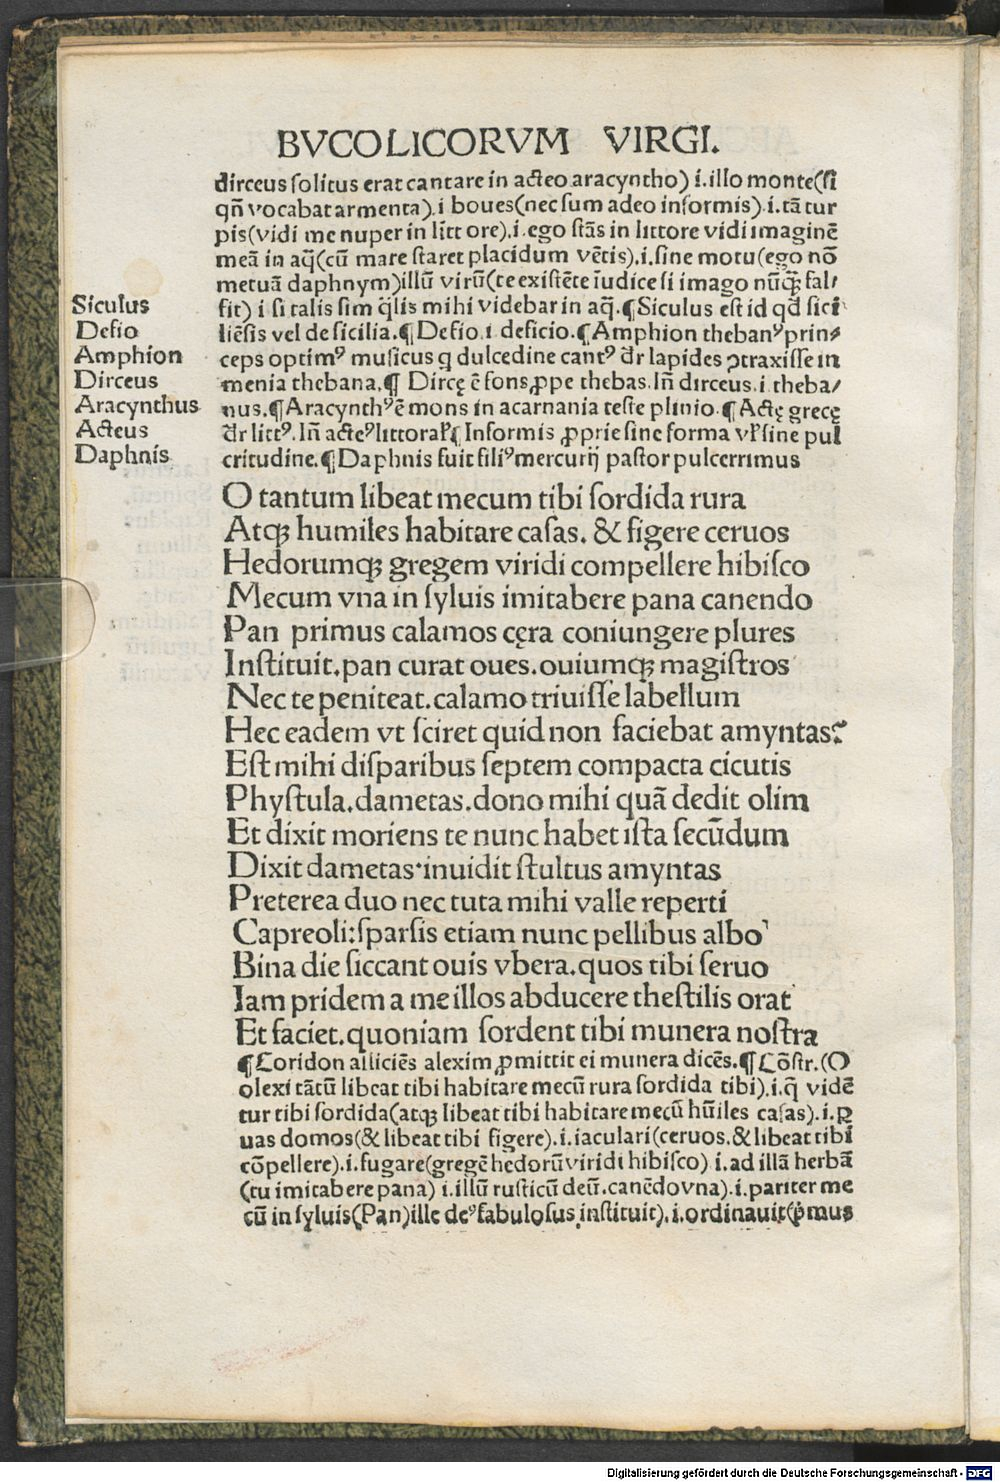 BVCOLICORVM VIRGI.
dirceus ſolitus erat cantare in acteo aracyntho) i. illo monte(ſi
qn̄ vocabat armenta).i boues(nec ſum adeo informis).i.tā tur
pis(vidi me nuper in litt ore).i.ego ſtās in littore vidi imaginē
meā in aq̄(cū mare ſtaret placidum vētis).i.ſine motu(ego nō
metuā daphnym)illū virū(te exiſtēte iudice ſi imago nūqꝫ fal/
fit) i ſi talis ſim q̄lis mihi videbar in aq̄.¶Siculus eſt id qd̄ ſici
liēſis vel de ſicilia.¶Defio.i. deficio.¶Amphion thebanꝰ prin/
ceps optimꝰ muſicus q dulcedine cantꝰ dr̄ lapides ꝯtraxiſſe in
menia thebana.¶ Dircę ē fons ꝓpe thebas.In̄ dirceus.i.theba/
nus.¶Aracynthꝰ ē mons in acarnania teſte plinio.¶Actę grecę
dr̄ littꝰ. In̄ acteꝰ littoral̄¶ Informis ꝓprie ſine forma vl̄ ſine pul
critudine.¶Daphnis fuit filiꝰ mercurij paſtor pulcerrimus
Siculus
Defio
Amphion
Dirceus
Aracynthus
Acteus
Daphnis
O tantum libeat mecum tibi ſordida rura
Atqꝫ humiles habitare caſas. & figere ceruos
Hedorumqꝫ gregem viridi compellere hibiſco
Mecum vna in ſyluis imitabere pana canendo
Pan primus calamos cęra coniungere plures
Inſtituit.pan curat oues.ouiumqꝫ magiſtros
Nec te peniteat.calamo triuiſſe labellum
Hec eadem vt ſciret quid non faciebat amyntas?
Eſt mihi diſparibus ſeptem compacta cicutis
Phyſtula.dametas.dono mihi quā dedit olim
Et dixit moriens te nunc habet iſta ſecūdum
Dixit dametas·inuidit ſtultus amyntas
Preterea duo nec tuta mihi valle reperti
Capreoli:ſparſis etiam nunc pellibus albo
Bina die ſiccant ouis vbera.quos tibi ſeruo
Iam pridem a me illos abducere theſtilis orat
Et faciet.quoniam ſordent tibi munera noſtra
¶Coridon alliciēs alexim ꝓmittit ei munera dicēs.¶Cōſtr.(O
olexi tātū libeat tibi habitare mecū rura ſordida tibi).i.q̄ vidē
tur tibi ſordida(atqꝫ libeat tibi habitare mecū hūiles caſas).i.ꝑ
uas domos(& libeat tibi figere).i.iaculari(ceruos.& libeat tibi
cōpellere).i.fugare(gregē hedorū viridi hibiſco) i.ad illā herbā
(tu imitabere pana) i.illū ruſticū deū.canēdo vna).i.pariter me
cū in ſyluis(Pan)ille deꝰ fabuloſus inſtituit).i.ordinauit(p̄mus
Digitalisierung gefördert durch die Deutsche Forschungsgemeinschaft - DFG